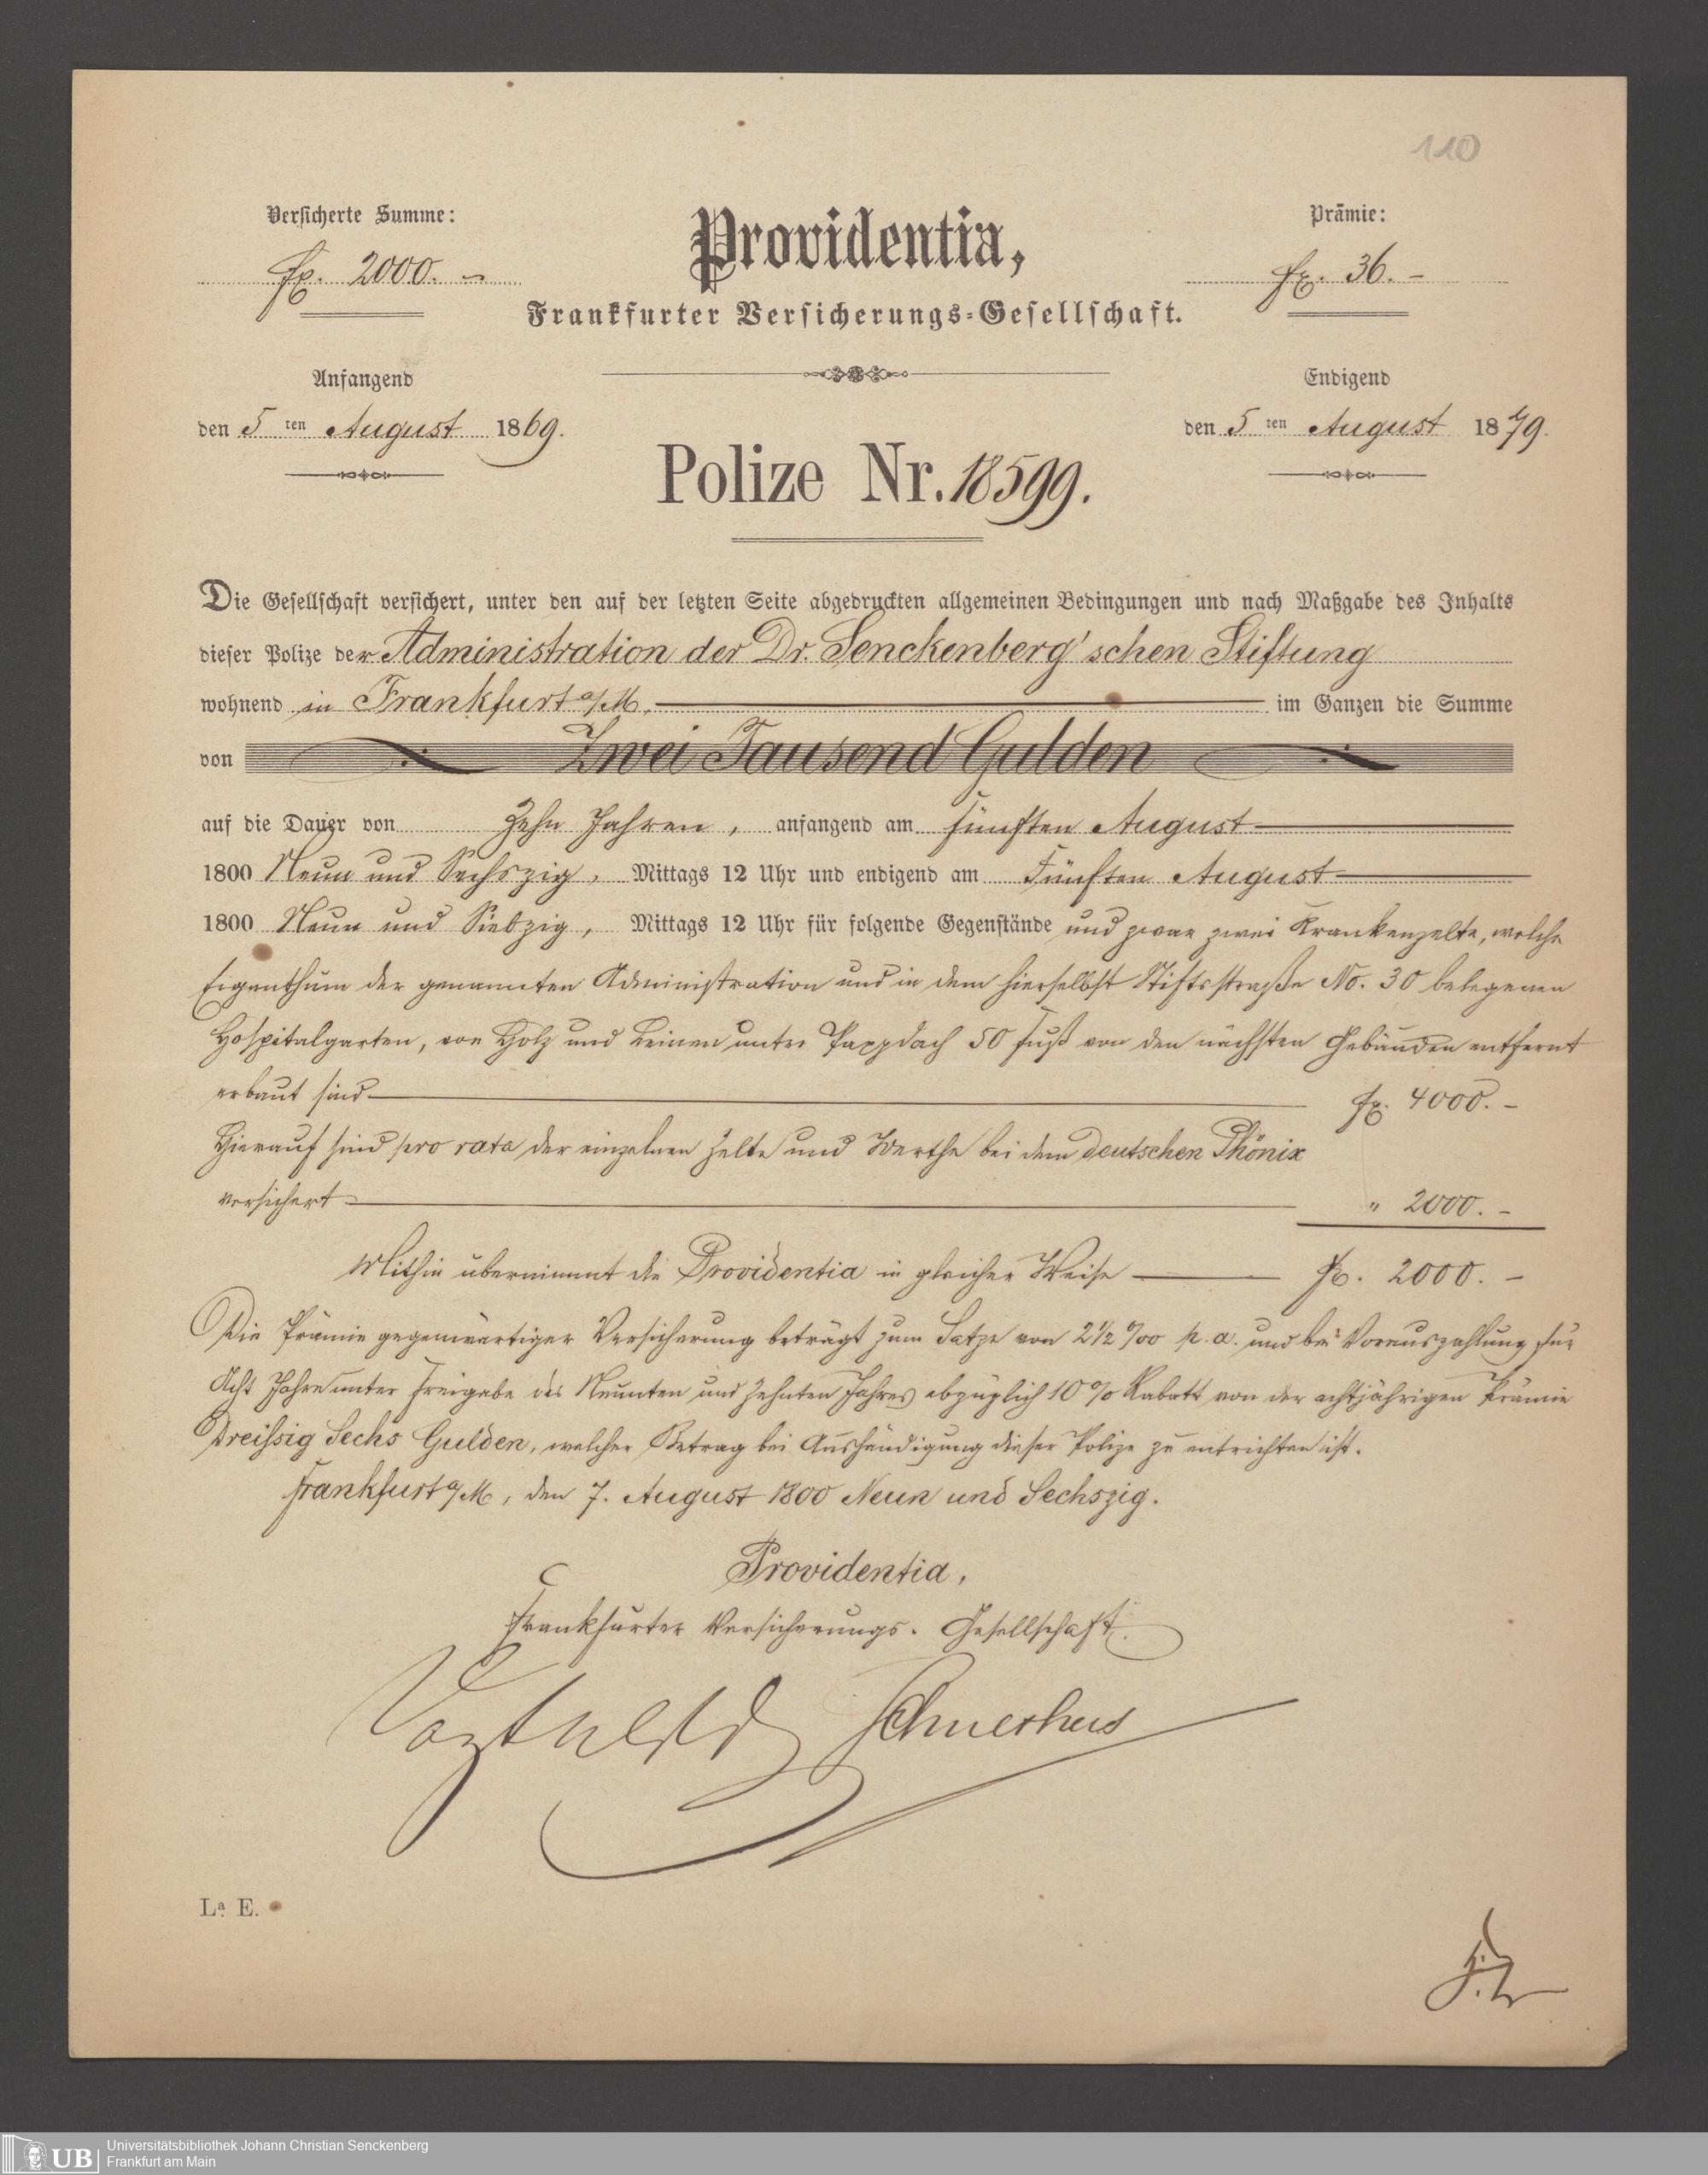 110
Versicherte Summe:
Prämie:
Providentia,
fl. 2000. –
fl. 36. –
Frankfurter Versicherungs-Gesellschaft.
Anfangend
Endigend
den 5 ten August 1869.
den 5 ten August 1879.
Polize Nr. 18599.
Die Gesellschaft versichert, unter den auf der letzten Seite abgedruckten allgemeinen Bedingungen und nach Maßgabe des Inhalts
dieser Polize der Administration der Dr. Senckenberg'schen Stiftung
wohnend in Frankfurt a/M. im Ganzen die Summe
von Zwei Tausend Gulden
auf die Dauer von Zehn Jahren, anfangend am fünften August
1800 Neun und Sechszig, Mittags 12 Uhr und endigend am Fünften August
1800 Neun und Siebzig, Mittags 12 Uhr für folgende Gegenstände und zwar zwei Krankenzelte, welche
Eigenthum der genannten Administration und in dem hierselbst Stiftsstraße No. 30 belegenen
Hospitalgarten, von Holz und Leinen unter Pappdach 50 Fuß von den nächsten Gebäuden entfernt
erbaut sind fl. 4000. –
Hierauf sind pro rata der einzelnen Zelte und Werthe bei dem deutschen Phönix
versichert " 2000. –
Mithin übernimmt die Providentia in gleicher Weise fl. 2000. –
Die Prämie gegenwärtiger Versicherung beträgt zum Satze von 2½ ‰ p. a. und bei Vorauszahlung für
Acht Jahre unter Freigabe des Neunten und Zehnten Jahres abzüglich 10 % Rabatt von der achtjährigen Prämie
Dreissig Sechs Gulden, welcher Betrag bei Aushändigung dieser Polize zu entrichten ist.
Frankfurt a/M, den 7. August 1800 Neun und Sechszig.
Providentia,
Frankfurter Versicherungs-Gesellschaft.
La. E.
UB
Universitätsbibliothek Johann Christian Senckenberg
Frankfurt am Main